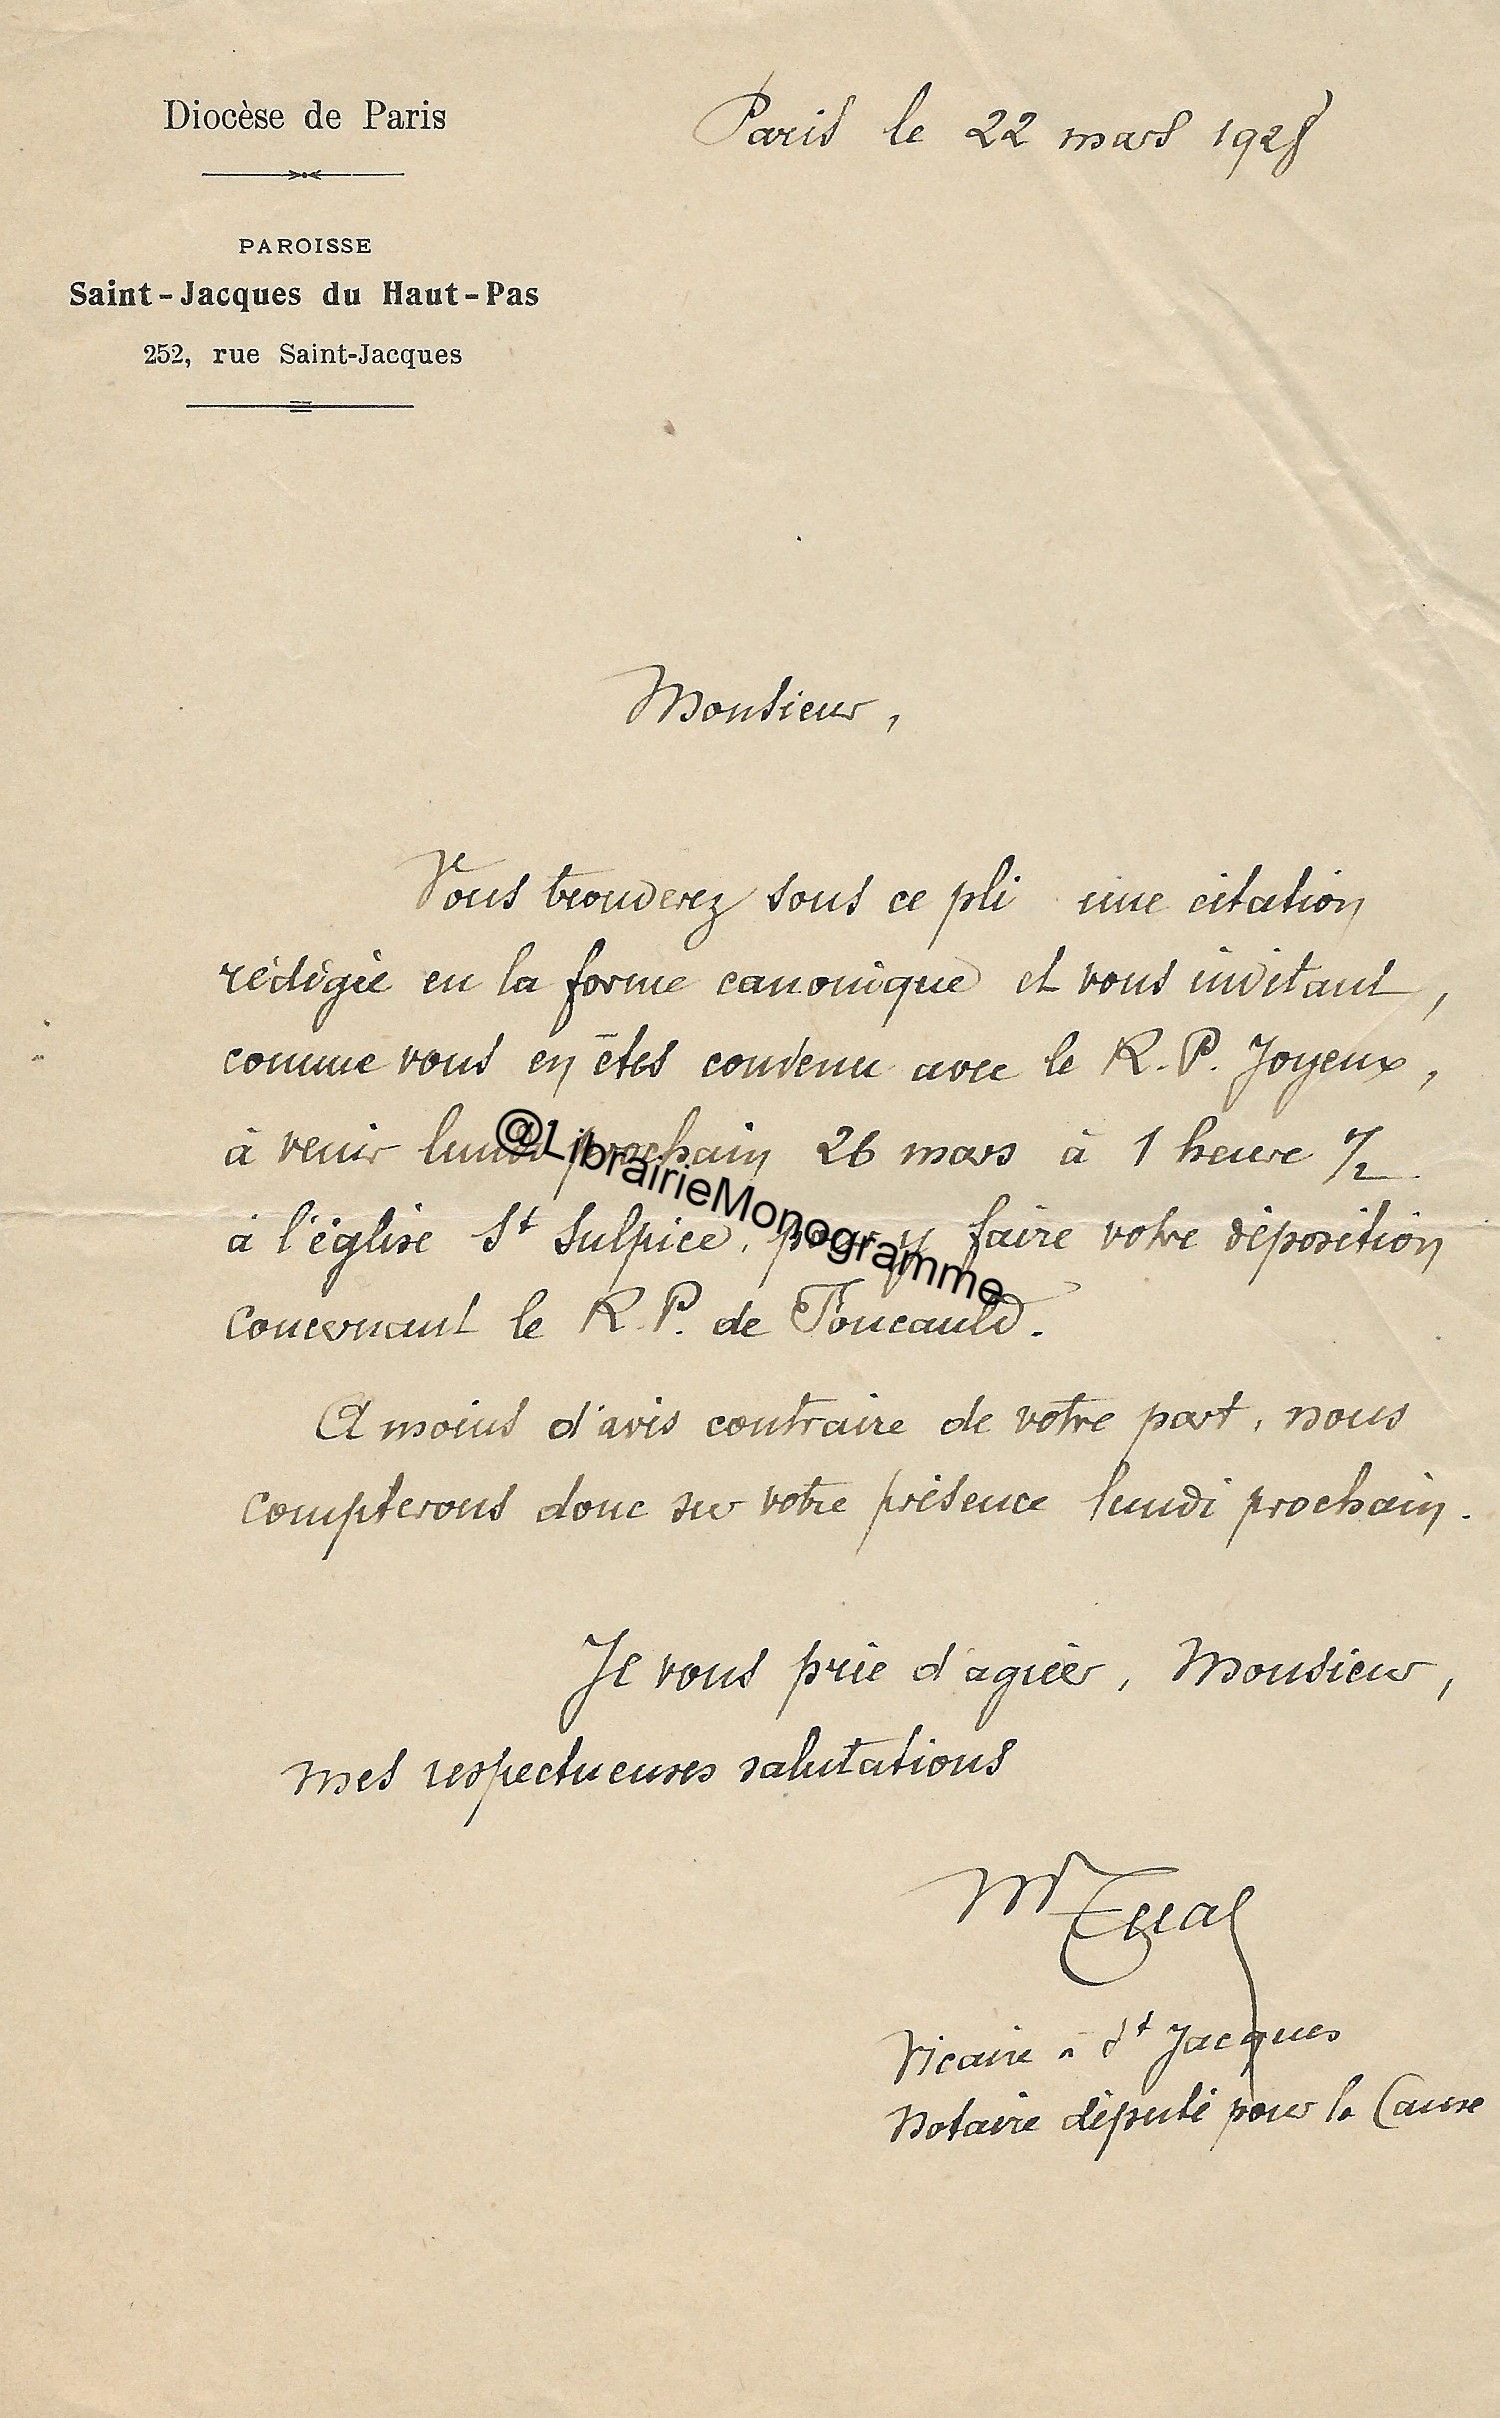 Diocèse de Paris
PAROISSE
Saint-Jacques du Haut-Pas
252, rue Saint-Jacques
Paris le 22 mars 1928
Monsieur,
Vous trouverez sous ce pli une citation
rédigée en la forme canonique et vous invitant,
comme vous en êtes convenu avec le R. P. Joyeux,
à venir lundi prochain 26 mars à 1 heure 1/2
à l'église St Sulpice, pour y faire votre déposition
concernant le R. P. de Foucauld.
@LibrairieMonogramme
A moins d'avis contraire de votre part, nous
compterons donc sur votre présence lundi prochain.
Je vous prie d'agréer, Monsieur,
mes respectueuses salutations
M Tual
Vicaire à St Jacques
Notaire député pour la Cause